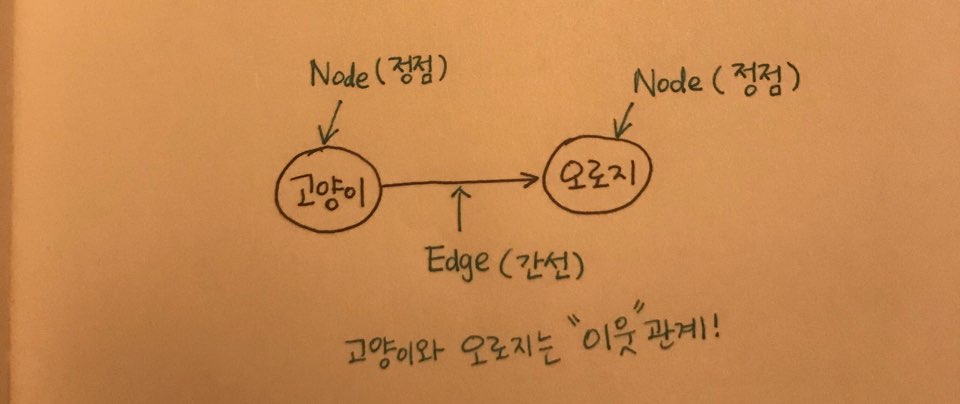 Node (정점)
Node (정점)
고양이
오로지
Edge (간선)
고양이와 오로지는 "이웃" 관계!